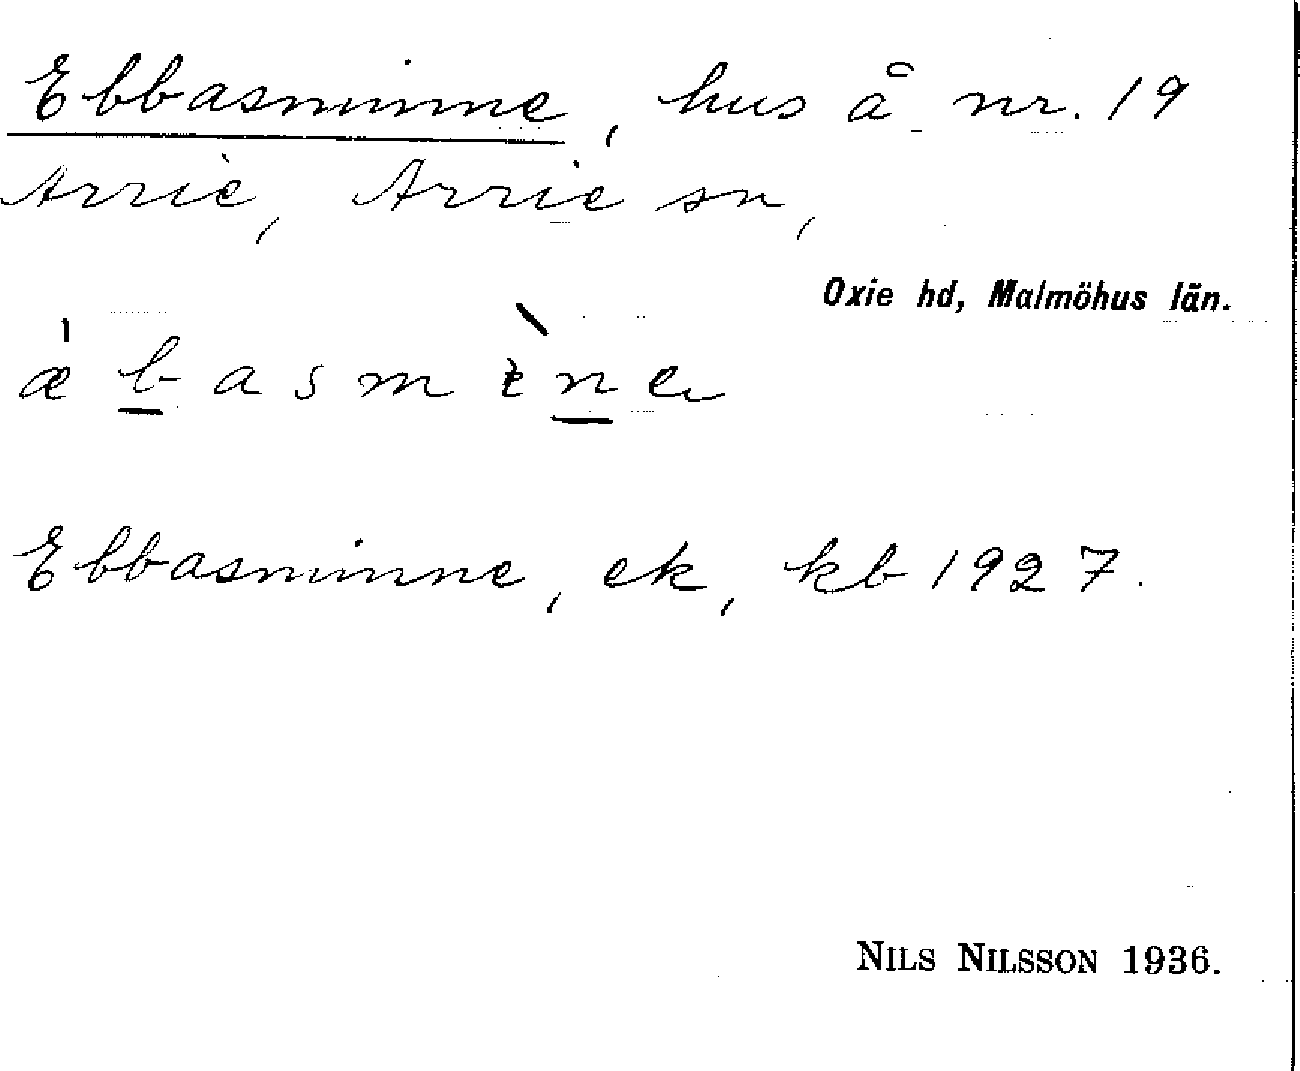 Ebbasminne, hus å nr. 19
Arrie, Arrie sn,
Oxie hd, Malmöhus län.
æ̍ b̲ a s m ɪ̀ n̲ e
Ebbasminne, ek, kb 1927.
NILS NILSSON 1936.